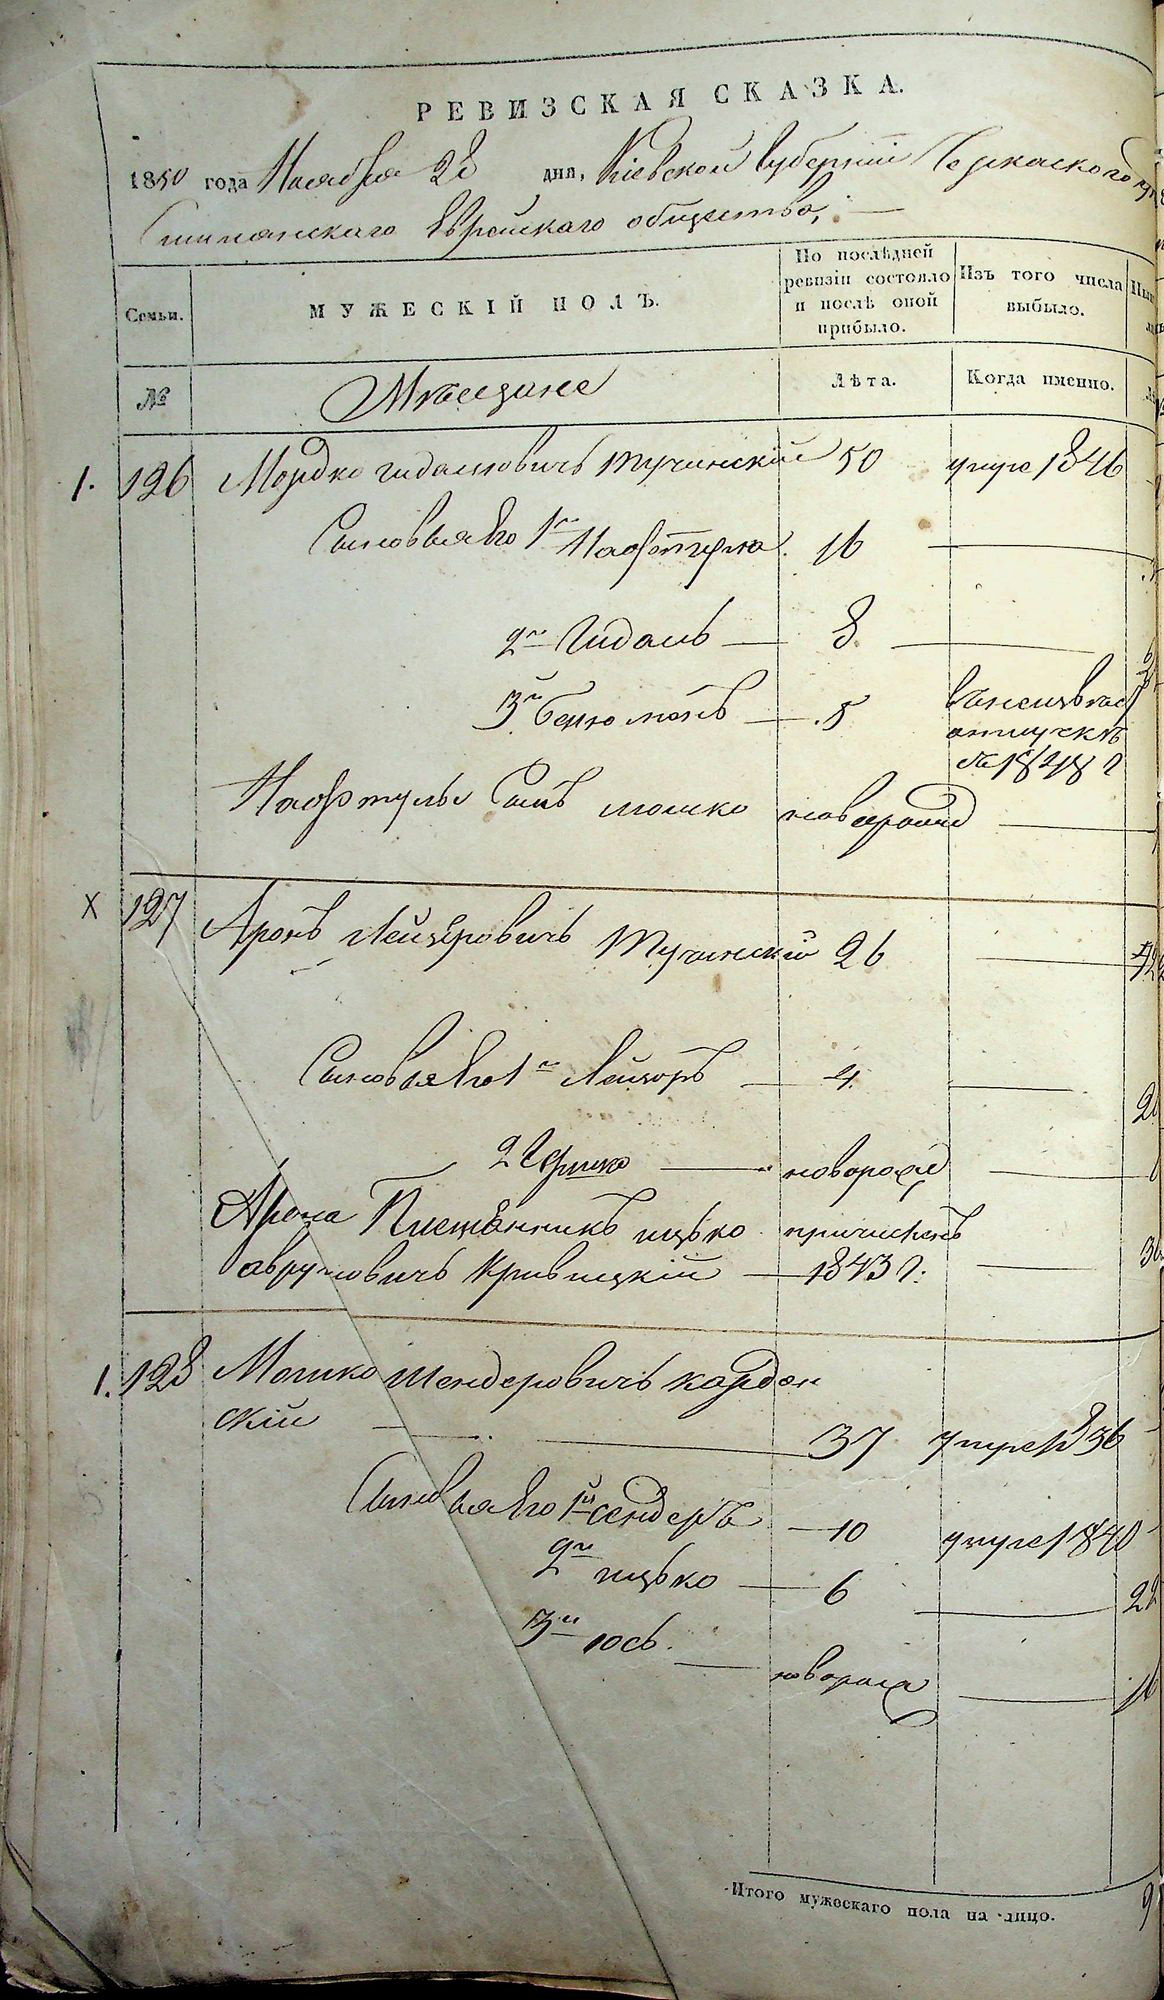 РЕВИЗСКАЯ СКАЗКА.
1850 года Ноября 28 дня, Кіевской Губерніи Черкаского
еврейскаго общества,
Семьи. МУЖЕСКІЙ ПОЛЪ. По послѣдней ревизіи состояло и послѣ оной прибыло. Изъ того числа выбыло.
№ Мѣщане Лѣта. Когда именно.
1. 126 Мордко Гидалювичъ Тучинскій 50 умре 1846
Сыновья Его 1й Нафтула 16
2й Гидаль 8
3й Бенюминъ 5
отлучкѣ
съ 1848 г
Нафтулы Сынъ Мошко новорожд
X 127 Аронъ Лейзеровичъ Тучинскій 26
Сыновья Его 1й Лейзоръ 4
2 Гершко новорожд
Арона Племянникъ Ицько причисленъ
Аврумовичъ Кривицкій 1843 г.
1. 128 Мошко Шендеровичъ Кордон
скій 37 умре 1836
Сыновья Его 1й Сендеръ 10 умре 1840
2й Ицько 6 22
3й Юсь новорожд 16
Итого мужескаго пола на лицо. 9